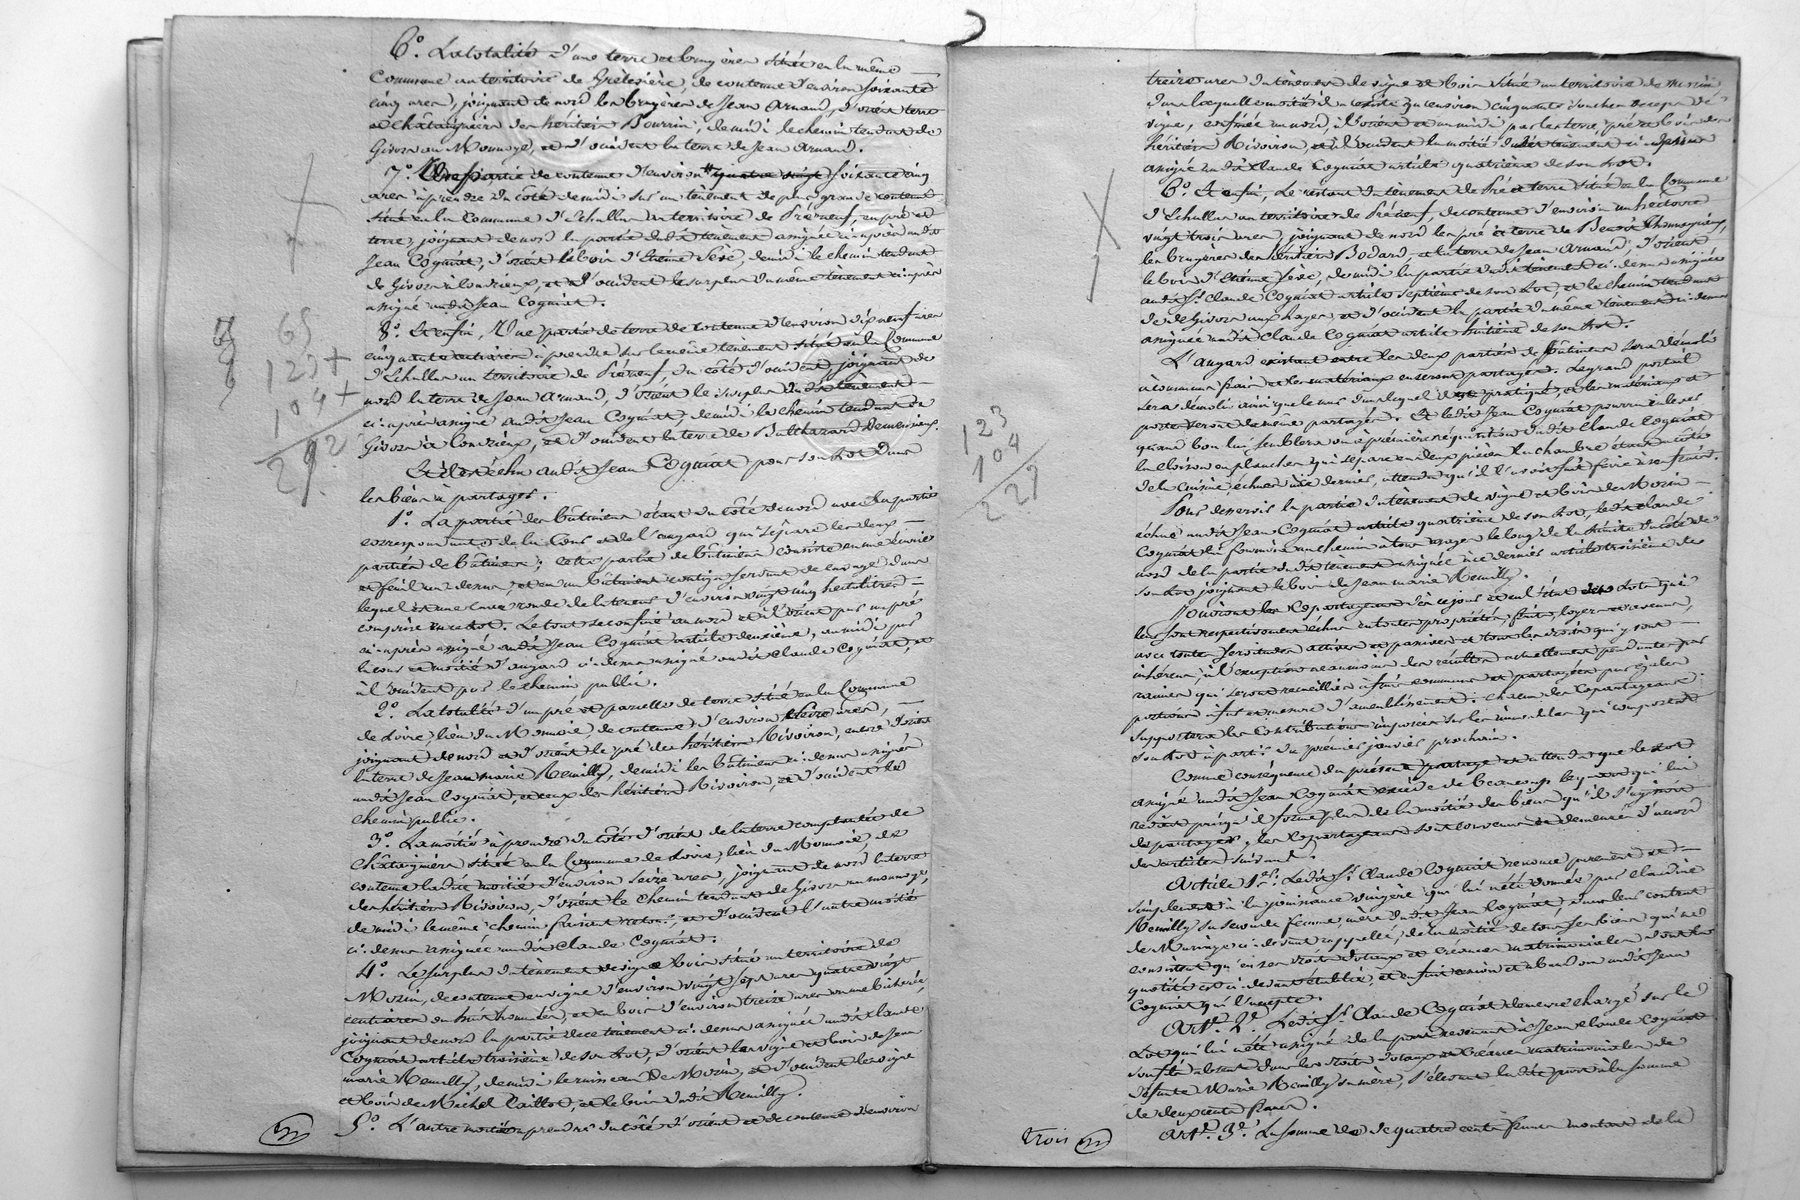 6º. La totalité d'une terre et bruyères située en la même
Commune au territoire de Grelesière, de contenue d'environ soixante
cinq ares, joignant de nord les bruyères de Jean Arnaud, d'orient terre
et châtaigneraie des héritiers Bourrin, de midi le chemin tendant de
Givors au Mounoye, et d'occident la terre de Jean Arnaud.
7º. Une partie de contenue d'environ soixante cinq
ares à prendre du côté de midi sur un tènement de plus grande contenue
situé en la Commune d'Echallas au territoire de Prénœuf, en pré et
terre, joignant de nord la partie dudit tènement assignée ci-après audit
Jean Cognat, d'orient le bois d'Etienne Sève, de midi le chemin tendant
de Givors à Condrieux, et d'occident le surplus du même tènement ci-après
assigné audit Jean Cognat.
8º. Et enfin, Une partie de terre de contenue d'environ dix neuf ares
cinquante centiares à prendre sur le même tènement situé en la Commune
d'Echallas au territoire de Prénœuf du côté d'occident, joignant de
nord la terre de Jean Arnaud, d'orient le surplus dudit tènement
ci-après assigné audit Jean Cognat, de midi le chemin tendant de
Givors à Condrieux, et d'occident la terre de Balthazard
Et il est échu audit Jean Cognat pour son lot dans
les biens à partager.
1º. La partie des bâtiments étant du côté de nord avec la partie
correspondante de la Cour et de l'angard qui sépare les deux
parties de bâtiments; cette partie de bâtiments consiste en une écurie
et fenil au dessus, et en un bâtiment contigu servant de cuvage dans
lequel est une cuve ronde de la teneur d'environ vingt cinq hectolitres
comprise en ce lot. Le tout se confine au nord et à l'orient par un pré
ci-après assigné audit Jean Cognat article deuxième, au midi par
la cour et moitié d'angard ci-dessus assigné audit Claude Cognat, et
à l'occident par le chemin public.
2º. La totalité d'un pré et parcelle de terre situé en la Commune
de Loire, lieu du Mounoie, de contenue d'environ seize ares,
joignant de nord et d'orient le pré des héritiers Rivoiron, encore d'orient
la terre de Jean marie Remilly, de midi les bâtiments ci-dessus assignés
audit Jean Cognat, et ceux des héritiers Rivoiron, et d'occident le
chemin public.
3º. La moitié à prendre du côté d'orient de la terre complantée de
châtaigniers située en la Commune de Loire, lieu du Mounoie, de
contenue ladite moitié d'environ seize ares, joignant de nord la terre
des héritiers Rivoiron, d'orient le chemin tendant de Givors au mounoye,
de midi le même chemin faisant retour, et d'occident l'autre moitié
ci-dessus assignée audit Claude Cognat.
4º. Le surplus du tènement de vigne et bois situé au territoire de
Morin, de contenue en vigne d'environ vingt sept ares quatre vingt
centiares ou huit hommées, et en bois d'environ treize ares ou une bicherée,
joignant de nord la partie de ce tènement ci-dessus assignée audit Claude
Cognat article troisième de son lot, d'orient les vigne et bois de Jean
marie Remilly, de midi le ruisseau de Morin, et d'occident les vigne
et bois de Michel Caillot, et le bois dudit Remilly.
5º. L'autre moitié à prendre du côté d'orient et de contenue d'environ
65
123 +
104 +
292
treize ares du tènement de vigne et bois situé au territoire de Morin
dans laquelle moitié il existe environ cinquante souches ou ceps de
vigne, confinée au nord, à l'orient et au midi par les terre, pré et bois des
héritiers Rivoiron et à l'occident la moitié dudit tènement ci-dessus
assigné audit Claude Cognat article quatrième de son lot.
6º. Et enfin, Le restant du tènement de Pré et terre situé en la Commune
d'Echallas au territoire de Prénœuf, de contenue d'environ un hectare
vingt trois ares, joignant de nord les pré et terre de Benoit
les bruyères des héritiers Bodard, et la terre de Jean Arnaud, d'orient
le bois d'Etienne Sève, de midi la partie dudit tènement ci-dessus assignée
audit Sr. Claude Cognat article septième de son lot, et le chemin tendant
de Givors aux hayes, et d'occident la partie du même tènement ci-dessus
assignée audit Claude Cognat article huitième de son lot.
L'angard existant entre les deux parties de bâtiments sera démoli
à communs frais et les matériaux en seront partagés. Le grand portail
sera démoli ainsi que le mur dans lequel il est pratiqué, et les matériaux et
porte seront de même partagés. Et ledit Jean Cognat pourra enlever
quand bon lui semblera ou à première réquisition dudit Claude Cognat
la cloison en planches qui sépare en deux pièces la chambre étant à côté
de la cuisine, échue à ce dernier, attendu qu'il l'avait fait faire à ses frais.
Pour desservir la partie du tènement de vigne et bois de Morin
échue audit Jean Cognat article quatrième de son lot, ledit Claude
Cognat lui fournira un chemin à tous usages le long de la limite du côté de
nord de la partie dudit tènement assignée à ce dernier article troisième de
son lot joignant le bois de Jean marie Remilly.
Jouiront les Copartageans dès ce jour et en l'état des lots qui
leur sont respectivement échus en toutes propriétés, fruits, loyers et revenus,
avec toutes servitudes actives et passives et tous les droits qui y sont
inhérens, à l'exception néanmoins des récoltes actuellement pendantes par
racines qui seront recueillies à frais communs et partagées par égales
portions à fur et mesure d'ameublissement. Chacun des Copartageans
supportera les Contributions imposées sur les immeubles qui composent
son lot à partir du premier janvier prochain.
Comme conséquence du présent partage et attendu que le lot
assigné audit Jean Cognat excède de beaucoup le quart qui lui
revient puisqu'il forme plus de la moitié des biens qu'il s'agissait
de partager, les Copartageans sont convenus et demeurés d'accord
des articles suivants.
Article 1er. Ledit Sr. Claude Cognat renonce purement et
simplement à la jouissance viagère qui lui a été donnée par Claudine
Remilly sa seconde femme, mère dudit Jean Cognat, dans leur contrat
de Mariage ci-devant rappellé, de la moitié de tous ses biens qui ne
consistent qu'en ses droits dotaux et créances matrimoniales dont la
quotité est ci-devant établie, et en fait cession et abandon audit Jean
Cognat qui l'accepte.
Art. 2e. Ledit Sr. Claude Cognat demeure chargé sur le
Lot qui lui a été assigné de la part revenant à Jean Claude Cognat
son fils absent dans les droits dotaux et Créances matrimoniales de
défunte Marie Remilly sa mère, s'élevant ladite part à la somme
de deux cents francs.
Art. 3e. La somme de quatre cents francs montant de la
123
104
227
trois